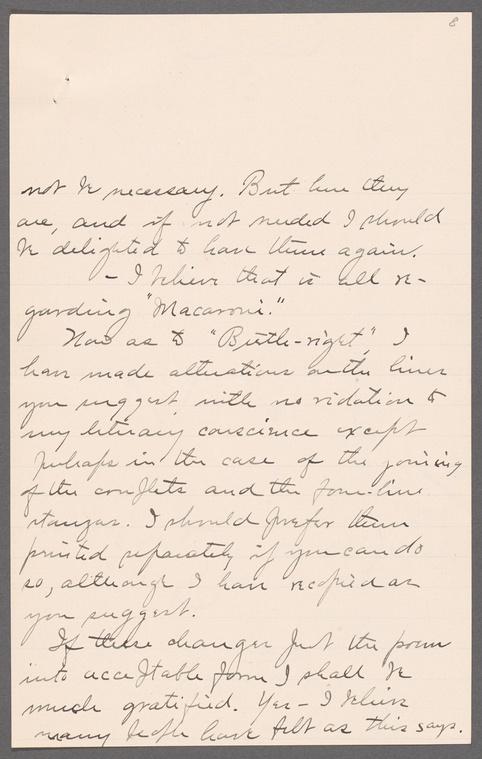 8
not be necessary. But here they
are, and if not needed I should
be delighted to have them again.
- I believe that is all re-
garding "Macaroni."
Now as to "Birth-right," I
have made alterations on the lines
you suggest, with no violation to
my literary conscience except
perhaps in the case of the joining
of the couplets and the four-line
stanzas. I should prefer them
printed separately if you can do
so, although I have recopied as
you suggest.
If these changes put the poem
into acceptable form I shall be
much gratified. Yes - I believe
many people have felt as this says.